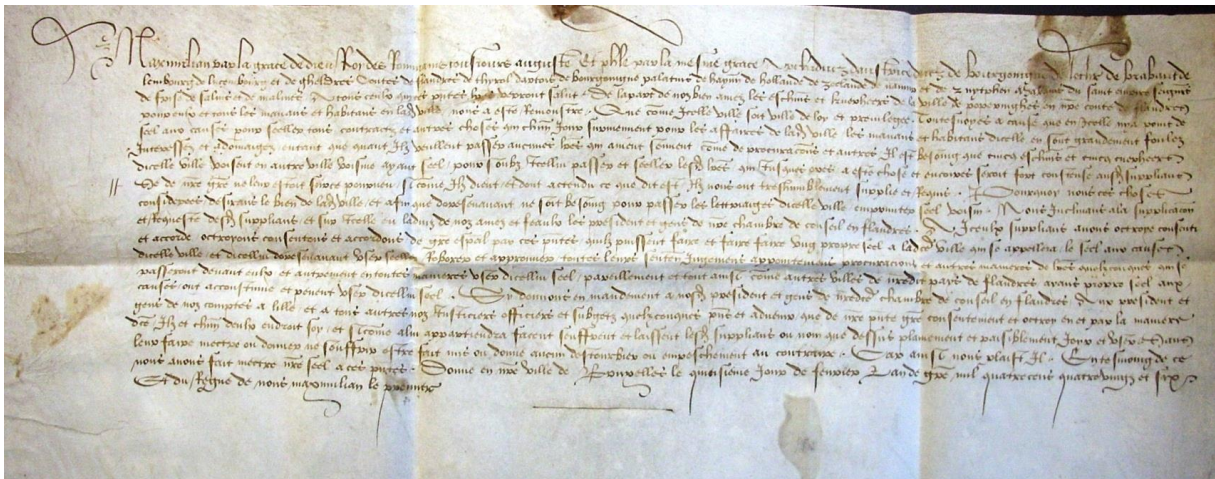 Maximilian par la grace de dieu Roy des Rommains tousiours auguste Et phle par la mesme grace Archiducz daustrice ducz de bourgoingne de lothr de brabant de
lembourg de luxembourg et de gheldres Contes de flandres de thyrol dartois de bourgoingne palatins de haynn de hollande de zelande de namur et de zuytphen du saint empire seigrs
de frise de salins et de malines A tous ceulx qui ces pntes lres verront salut De la part de noz bien amez les eschins et keurheers de la ville de poperinghes en nre conte de flandres
pour eulx et tous les manans et habitans en lad ville nous a este Remonstre Que come icelle ville soit ville de loy et previlege Toutesuoyes a cause que en icelle nya point de
seel aux causes pour seeller tous contractz et autres choses qui chun jour surviennent pour les affaires de lad ville les manans et habitans dicelle en sont grandement foulez
Interessez et adomaigez entant que quant ilz veullent passer aucunes lres qui aient come de procuracons et autres Il est besoing que eschins et keurheers
dicelle ville voisent en autre ville voisine ayant seel pour soubz icellui passer et seeller lesd lres qui Jusques ores a este chose et encores seroit fort ausd supplians
Se de nre gre ne leur estoit sur ce pourveu si come ilz dient et dont actendu ce que dit est Ilz nous ont treshumblement supplie et Requis Pourquoy nous ces choses
considerees desirans le bien de lad ville et afin que doresenavant ne soit besoing pour passer les lettraiges dicelle ville empruntter seel voisin Nous Inclinans a la supplicacion
et Requeste desd supplians et sur icelle eu ladvis de noz amez et feaulx les president et gens de nre chambre de conseil en flandres A Iceulx supplians avons octroye consenti
et accorde octroyons consentons et accordons de gre espal par ces pntes quilz puissent faire et faire faire ung propre seel a lad ville qui se appellera le seel aux causes
dicelle ville et dicellui doresenavant user seeller Roborer et approuver toutes leurs senten Jugemens appointemens procuracions et autres manieres de lres quelzconques qui se
passeront devant eulx et autrement en toutes manieres user dicellui seel pareillement et tout ainsi come autres villes de nredit pays de flandres ayans propre seel aux
causes ont accoustume et peuent user dicellui seel Sy donnons en mandement a nosd president et gens de nredite chambre de conseil en flandres Aux president et
gens de noz comptes a lille et a tous autres noz Justiciers officiers et subgetz quelzconques pns et advenir que de nre pnte gre consentement et octroy en et par la maniere
dite Ilz et chun deulx endroit soy et si come a lui appartiendra facent seuffrent et laissent lesd supplians ou nom que dessus plainement et paisiblement Joyr et user Sans
leur faire mettre ou donner ne souffrir estre fait mis ou donne aucun destourbier ou empeschement au contraire Car ainsi nous plaist il En tesmoing de ce
nous avons fait mettre nre seel a ces pntes Donne en nre ville de Bruxelles le quinsieme Jour de fevrier Lan de gre mil quatre cens quatre vings et six
Et du Regne de nous maximilian le premier